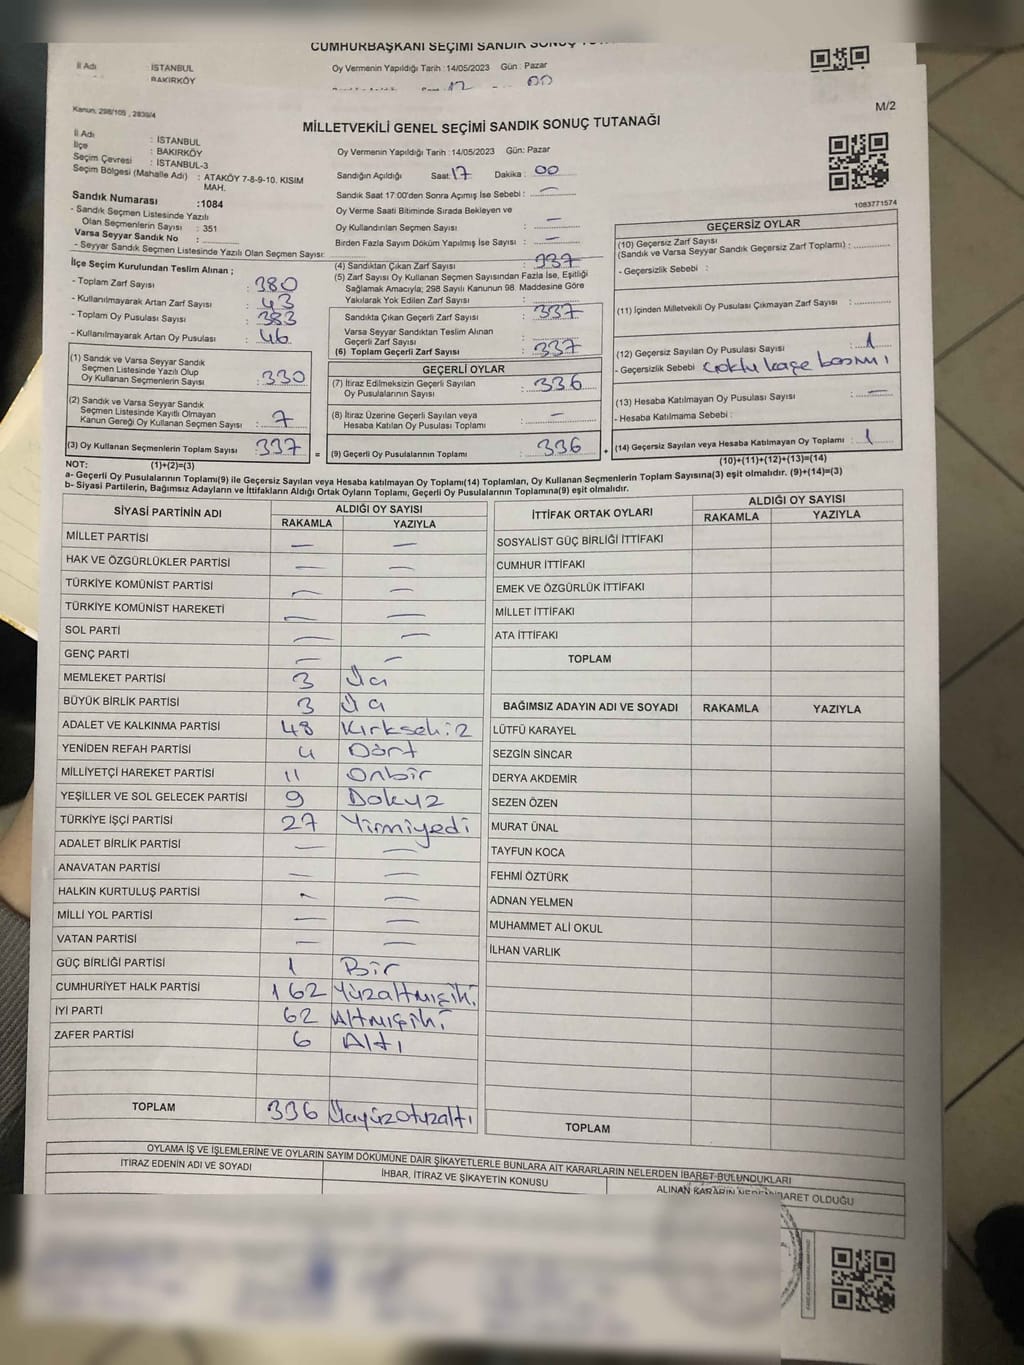 CUMHURBAŞKANI SEÇİMİ SANDIK SONUÇ
İl Adı İSTANBUL
BAKIRKÖY
Oy Vermenin Yapıldığı Tarih : 14/05/2023 Gün : Pazar
17 00
Kanun: 298/105 , 2839/4
M/2
MİLLETVEKİLİ GENEL SEÇİMİ SANDIK SONUÇ TUTANAĞI
İl Adı : İSTANBUL
İlçe : BAKIRKÖY
Seçim Çevresi : İSTANBUL-3
Seçim Bölgesi (Mahalle Adı) : ATAKÖY 7-8-9-10. KISIM MAH.
Sandık Numarası :1084
- Sandık Seçmen Listesinde Yazılı
Olan Seçmenlerin Sayısı : 351
Varsa Seyyar Sandık No :
- Seyyar Sandık Seçmen Listesinde Yazılı Olan Seçmen Sayısı:
Oy Vermenin Yapıldığı Tarih : 14/05/2023 Gün: Pazar
Sandığın Açıldığı Saat: 17 Dakika : 00
Sandık Saat 17:00'den Sonra Açımış İse Sebebi : —
Oy Verme Saati Bitiminde Sırada Bekleyen ve
Oy Kullandırılan Seçmen Sayısı : —
Birden Fazla Sayım Döküm Yapılmış İse Sayısı : —
1083771574
İlçe Seçim Kurulundan Teslim Alınan ;
- Toplam Zarf Sayısı : 380
- Kullanılmayarak Artan Zarf Sayısı : 43
- Toplam Oy Pusulası Sayısı : 383
- Kullanılmayarak Artan Oy Pusulası : 46
(1) Sandık ve Varsa Seyyar Sandık
Seçmen Listesinde Yazılı Olup
Oy Kullanan Seçmenlerin Sayısı : 330
(2) Sandık ve Varsa Seyyar Sandık
Seçmen Listesinde Kayıtlı Olmayan
Kanun Gereği Oy Kullanan Seçmen Sayısı : 7
(3) Oy Kullanan Seçmenlerin Toplam Sayısı : 337 =
(4) Sandıktan Çıkan Zarf Sayısı : 337
(5) Zarf Sayısı Oy Kullanan Seçmen Sayısından Fazla İse, Eşitliği
Sağlamak Amacıyla; 298 Sayılı Kanunun 98. Maddesine Göre
Yakılarak Yok Edilen Zarf Sayısı :
Sandıkta Çıkan Geçerli Zarf Sayısı : 337
Varsa Seyyar Sandıktan Teslim Alınan
Geçerli Zarf Sayısı :
(6) Toplam Geçerli Zarf Sayısı : 337
GEÇERLİ OYLAR
(7) İtiraz Edilmeksizin Geçerli Sayılan
Oy Pusulalarının Sayısı : 336
(8) İtiraz Üzerine Geçerli Sayılan veya
Hesaba Katılan Oy Pusulası Toplamı : —
(9) Geçerli Oy Pusulalarının Toplamı : 336 +
GEÇERSİZ OYLAR
(10) Geçersiz Zarf Sayısı
(Sandık ve Varsa Seyyar Sandık Geçersiz Zarf Toplamı) :
- Geçersizlik Sebebi :
(11) İçinden Milletvekili Oy Pusulası Çıkmayan Zarf Sayısı :
(12) Geçersiz Sayılan Oy Pusulası Sayısı : 1
- Geçersizlik Sebebi : çoklu kaşe basımı
(13) Hesaba Katılmayan Oy Pusulası Sayısı : —
- Hesaba Katılmama Sebebi :
(14) Geçersiz Sayılan veya Hesaba Katılmayan Oy Toplamı : 1
NOT: (1)+(2)=(3) (10)+(11)+(12)+(13)=(14)
a- Geçerli Oy Pusulalarının Toplamı(9) ile Geçersiz Sayılan veya Hesaba katılmayan Oy Toplamı(14) Toplamları, Oy Kullanan Seçmenlerin Toplam Sayısına(3) eşit olmalıdır. (9)+(14)=(3)
b- Siyasi Partilerin, Bağımsız Adayların ve İttifakların Aldığı Ortak Oyların Toplamı, Geçerli Oy Pusulalarının Toplamına(9) eşit olmalıdır.
SİYASİ PARTİNİN ADI ALDIĞI OY SAYISI
RAKAMLA YAZIYLA
MİLLET PARTİSİ — —
HAK VE ÖZGÜRLÜKLER PARTİSİ — —
TÜRKİYE KOMÜNİST PARTİSİ — —
TÜRKİYE KOMÜNİST HAREKETİ — —
SOL PARTİ — —
GENÇ PARTİ — —
MEMLEKET PARTİSİ 3 Üç
BÜYÜK BİRLİK PARTİSİ 3 Üç
ADALET VE KALKINMA PARTİSİ 48 Kırksekiz
YENİDEN REFAH PARTİSİ 4 Dört
MİLLİYETÇİ HAREKET PARTİSİ 11 Onbir
YEŞİLLER VE SOL GELECEK PARTİSİ 9 Dokuz
TÜRKİYE İŞÇİ PARTİSİ 27 Yirmiyedi
ADALET BİRLİK PARTİSİ — —
ANAVATAN PARTİSİ — —
HALKIN KURTULUŞ PARTİSİ — —
MİLLİ YOL PARTİSİ — —
VATAN PARTİSİ — —
GÜÇ BİRLİĞİ PARTİSİ 1 Bir
CUMHURİYET HALK PARTİSİ 162 Yüzaltmışiki
İYİ PARTİ 62 Altmışiki
ZAFER PARTİSİ 6 Altı
TOPLAM 336 Üçyüzotuzaltı
İTTİFAK ORTAK OYLARI ALDIĞI OY SAYISI
RAKAMLA YAZIYLA
SOSYALİST GÜÇ BİRLİĞİ İTTİFAKI
CUMHUR İTTİFAKI
EMEK VE ÖZGÜRLÜK İTTİFAKI
MİLLET İTTİFAKI
ATA İTTİFAKI
TOPLAM
BAĞIMSIZ ADAYIN ADI VE SOYADI RAKAMLA YAZIYLA
LÜTFÜ KARAYEL
SEZGİN SİNCAR
DERYA AKDEMİR
SEZEN ÖZEN
MURAT ÜNAL
TAYFUN KOCA
FEHMİ ÖZTÜRK
ADNAN YELMEN
MUHAMMET ALİ OKUL
İLHAN VARLIK
TOPLAM
OYLAMA İŞ VE İŞLEMLERİNE VE OYLARIN SAYIM DÖKÜMÜNE DAİR ŞİKAYETLERLE BUNLARA AİT KARARLARIN NELERDEN İBARET BULUNDUKLARI
İTİRAZ EDENİN ADI VE SOYADI İHBAR, İTİRAZ VE ŞİKAYETİN KONUSU ALINAN KARARIN NEDEN İBARET OLDUĞU